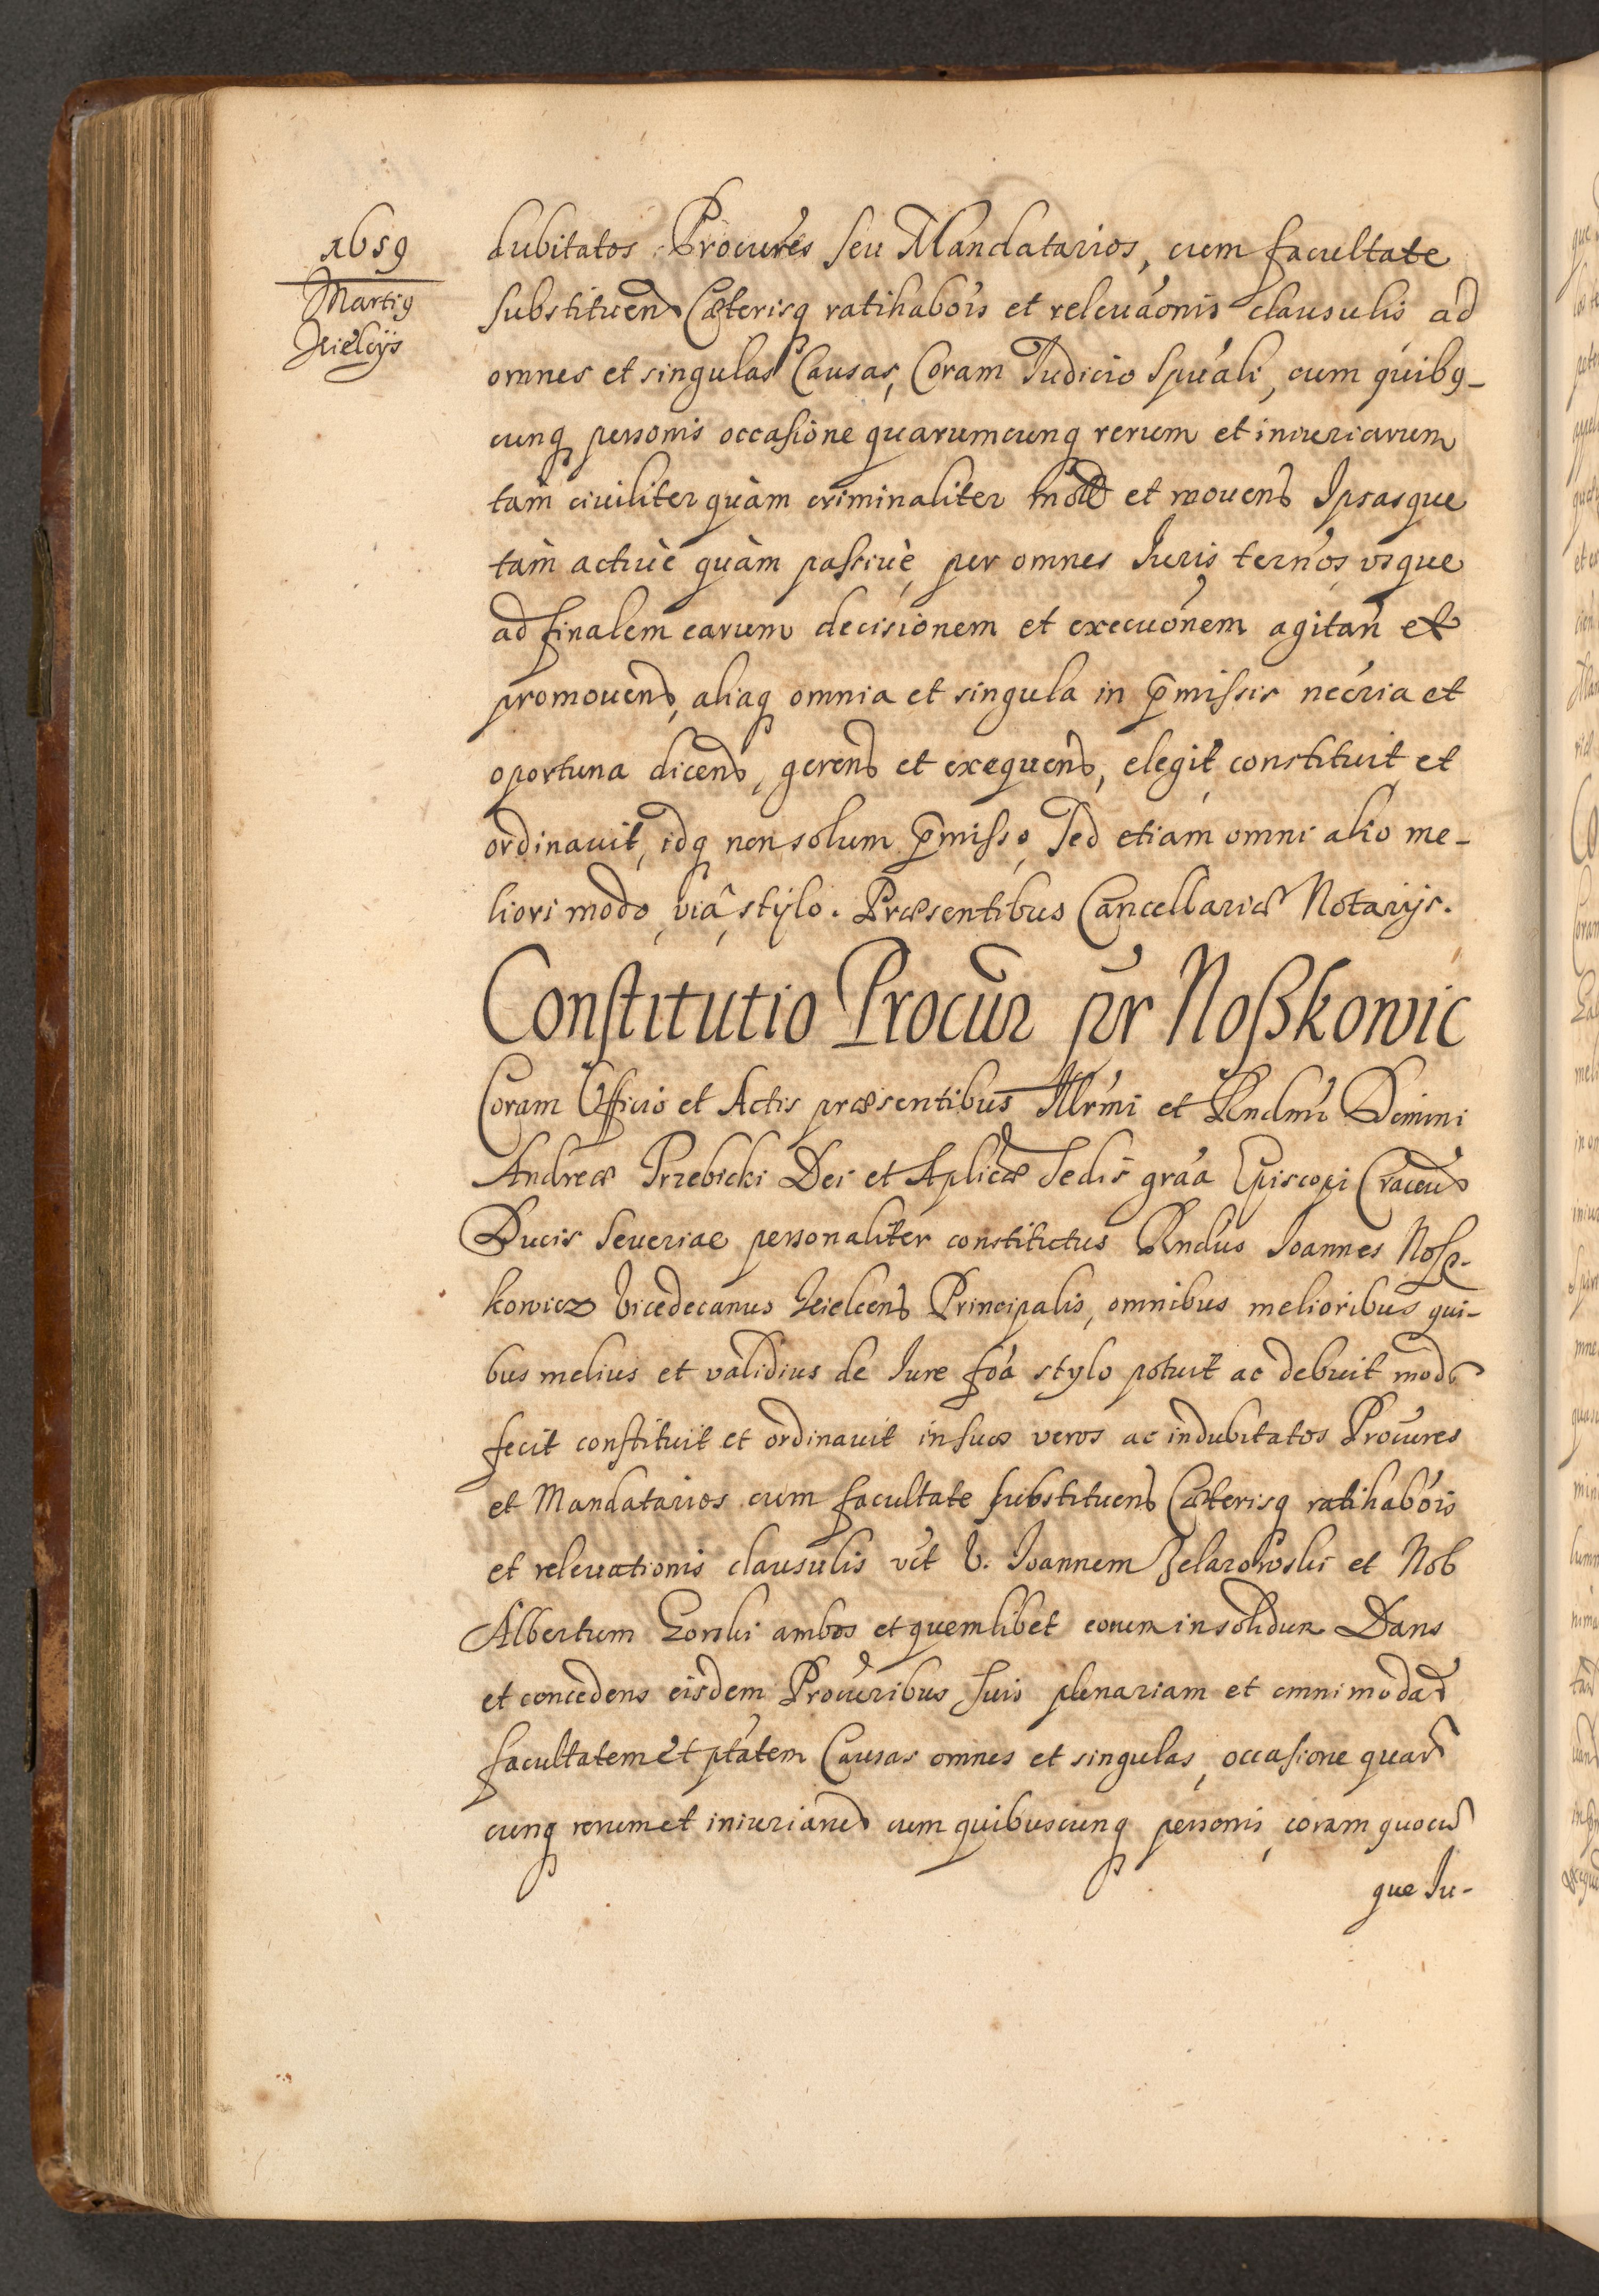 1659
Martig
Kielcijs
dubitatos Procures seu Mandatarios, cum facultate
substituend Cæterisq ratihabois et releuaonis clausulis ad
omnes et singulas Causas, Coram Iudicio Spuali, cum quibg-
cunq personis occasione quarumcunq rerum et iniuriarum
tam ciuiliter quàm criminaliter mot et mouend Ipsasque
tàm actiuè quàm passiuè, per omnes Iuris ternos, vsque
ad finalem earum decisionem et execuonem agitan et
promouend, aliaq omnia et singula in pmissis necria et
oportuna dicend, gerend et exequend, elegit, constituit, et
ordinauit, idq non solum pmisso, Sed etiam omni alio me-
liori modo, viâ, stylo. Præsentibus Cancellariæ Notarijs.
Constitutio Procur pr Noßkowic
Coram Officio et Actis præsentibus Illrmi et Rndmi Domini
Andreæ Trzebicki Dei et Aplicæ Sedis graa Episcopi Cracou
Ducis Seueriae personaliter constitutus Rndus Ioannes Noß-
kowicz Vicedecanus Kielcens Principalis, omnibus melioribus qui-
bus melius et validius de Iure foa stylo potuit ac debuit modo
fecit constituit et ordinauit in suos veros ac indubitatos Procures
et Mandatarios cum facultate substituend Cæterisq ratihabois
et releuationis clausulis vct V. Ioannem Zelazowski et Nob
Albertum Gorski ambos et quemlibet eorum in solidum Dans
et concedens eisdem Procuribus suis plenariam et omnimodam
facultatem et ptatem Causas omnes et singulas, occasione quar
cunq rerum et iniuriarum cum quibuscunq personis, coram quocu
que Iu-